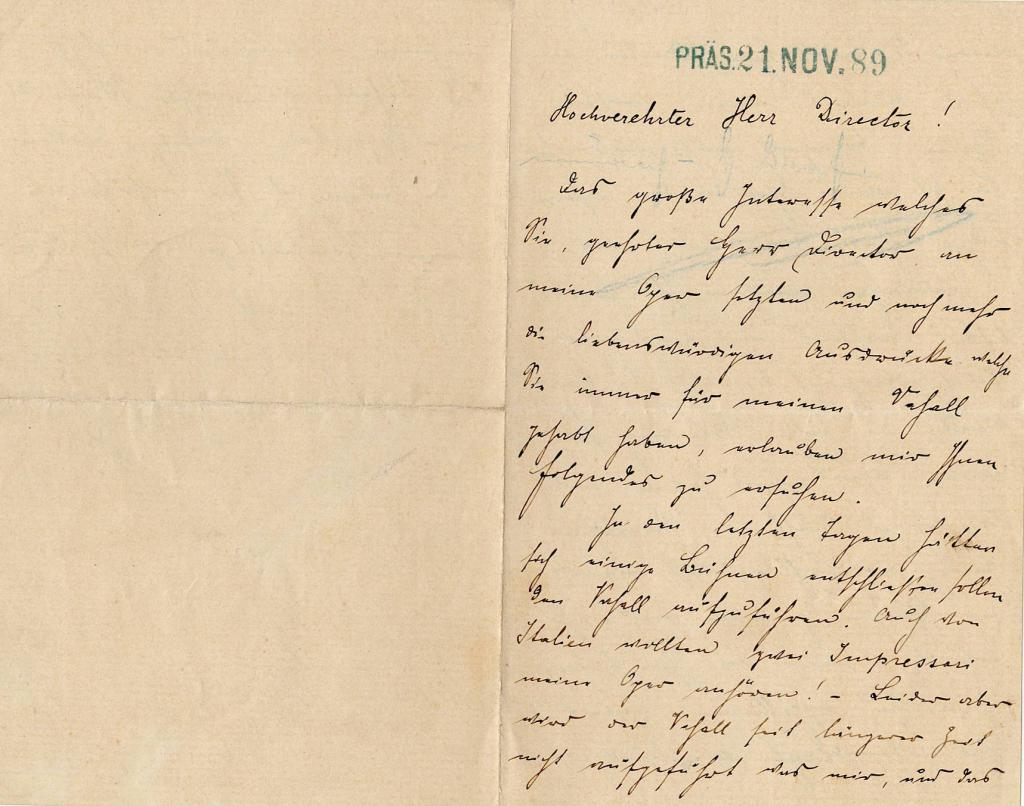 PRÄS. 21. NOV. 89
Hochverehrter Herr Director!
Das große Interesse welches
Sie, geehrter Herr Director an
meine Oper setzten und noch mehr
die liebenswürdigen Ausdrücke welche
Sie immer für meinen Vasall
gehabt haben, erlauben mir Ihnen
folgendes zu ersuchen.
In den letzten Tagen hätten
sich einige Bühnen entschließen sollen
den Vasall aufzuführen. Auch von
Italien wollten zwei Impressari
meine Oper anhören! - Leider aber
wird der Vasall seit längerer Zeit
nicht aufgeführt was mir, und das